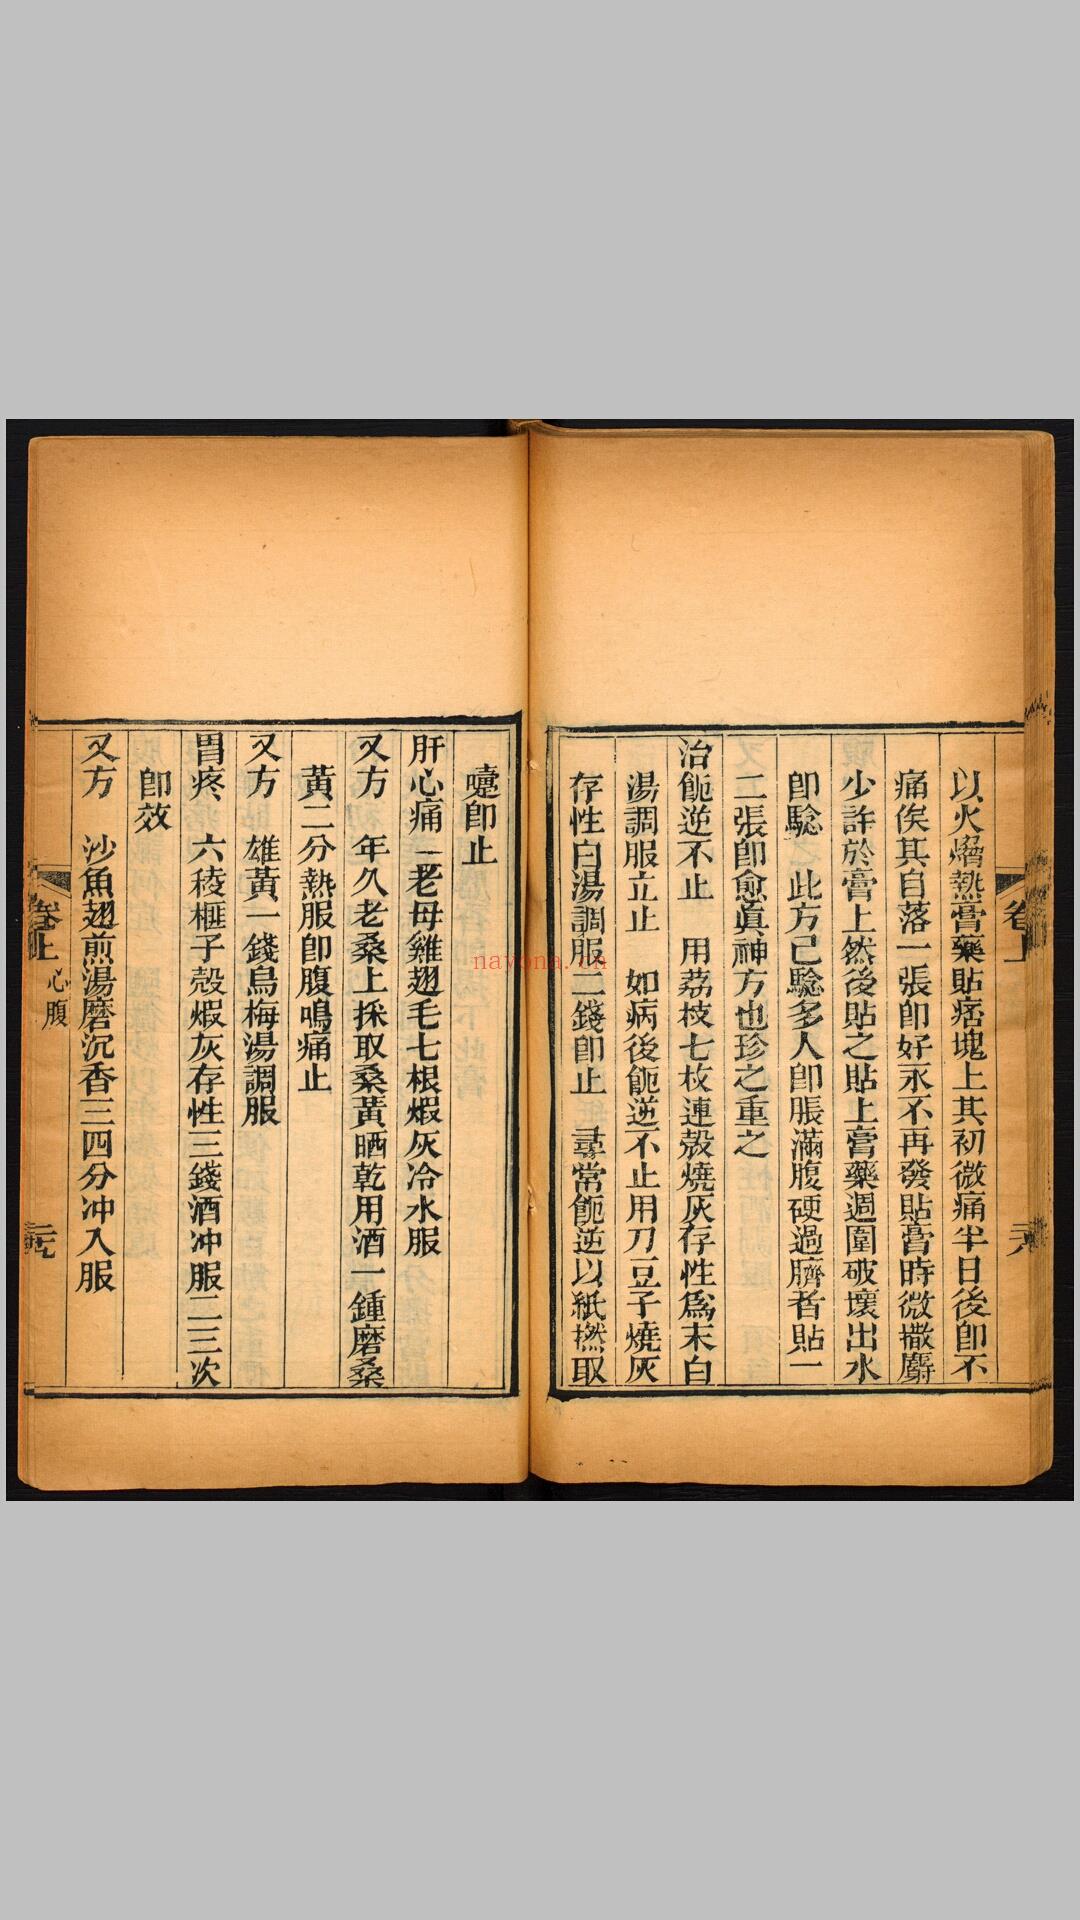 以火熸熱膏藥貼痞塊上其初微痛半日後卽不
痛俟其自落一張卽好永不再發貼膏時微撒麝
少許於膏上然後貼之貼上膏藥週圍破壞出水
卽騐之此方已騐多人卽脹滿腹硬過臍者貼一
二張卽愈眞神方也珍之重之
治呃逆不止　用荔枝七枚連殼燒灰存性爲末白
湯調服立止　如病後呃逆不止用刀豆子燒灰
存性白湯調服二錢卽止　尋常呃逆以紙撚取
卷上
嚏卽止
肝心痛　老母雞翅毛七根煆灰冷水服
又方　年久老桑上採取桑黃晒乾用酒一鍾磨桑
黃二分熱服卽腹鳴痛止
又方　雄黃一錢烏梅湯調服
胃疼　六稜榧子殼煆灰存性三錢酒冲服二三次
卽效
又方　沙魚翅煎湯磨沉香三四分冲入服
卷上　心腹　二九
nayona.cn